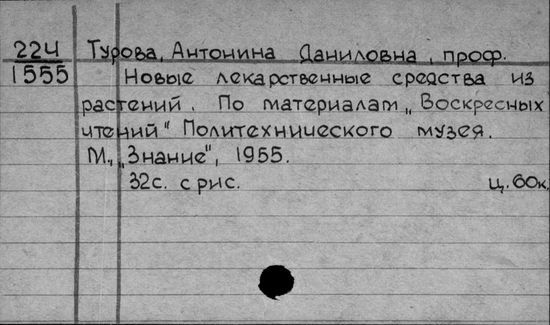 224 Турова, Антонина Даниловна, проф.
1555 Новые лекарственные средства из
растений. По материалам „Воскресных
чтений" Политехнического музея.
М., „Знание", 1955.
32с. с рис. ц. 60к.